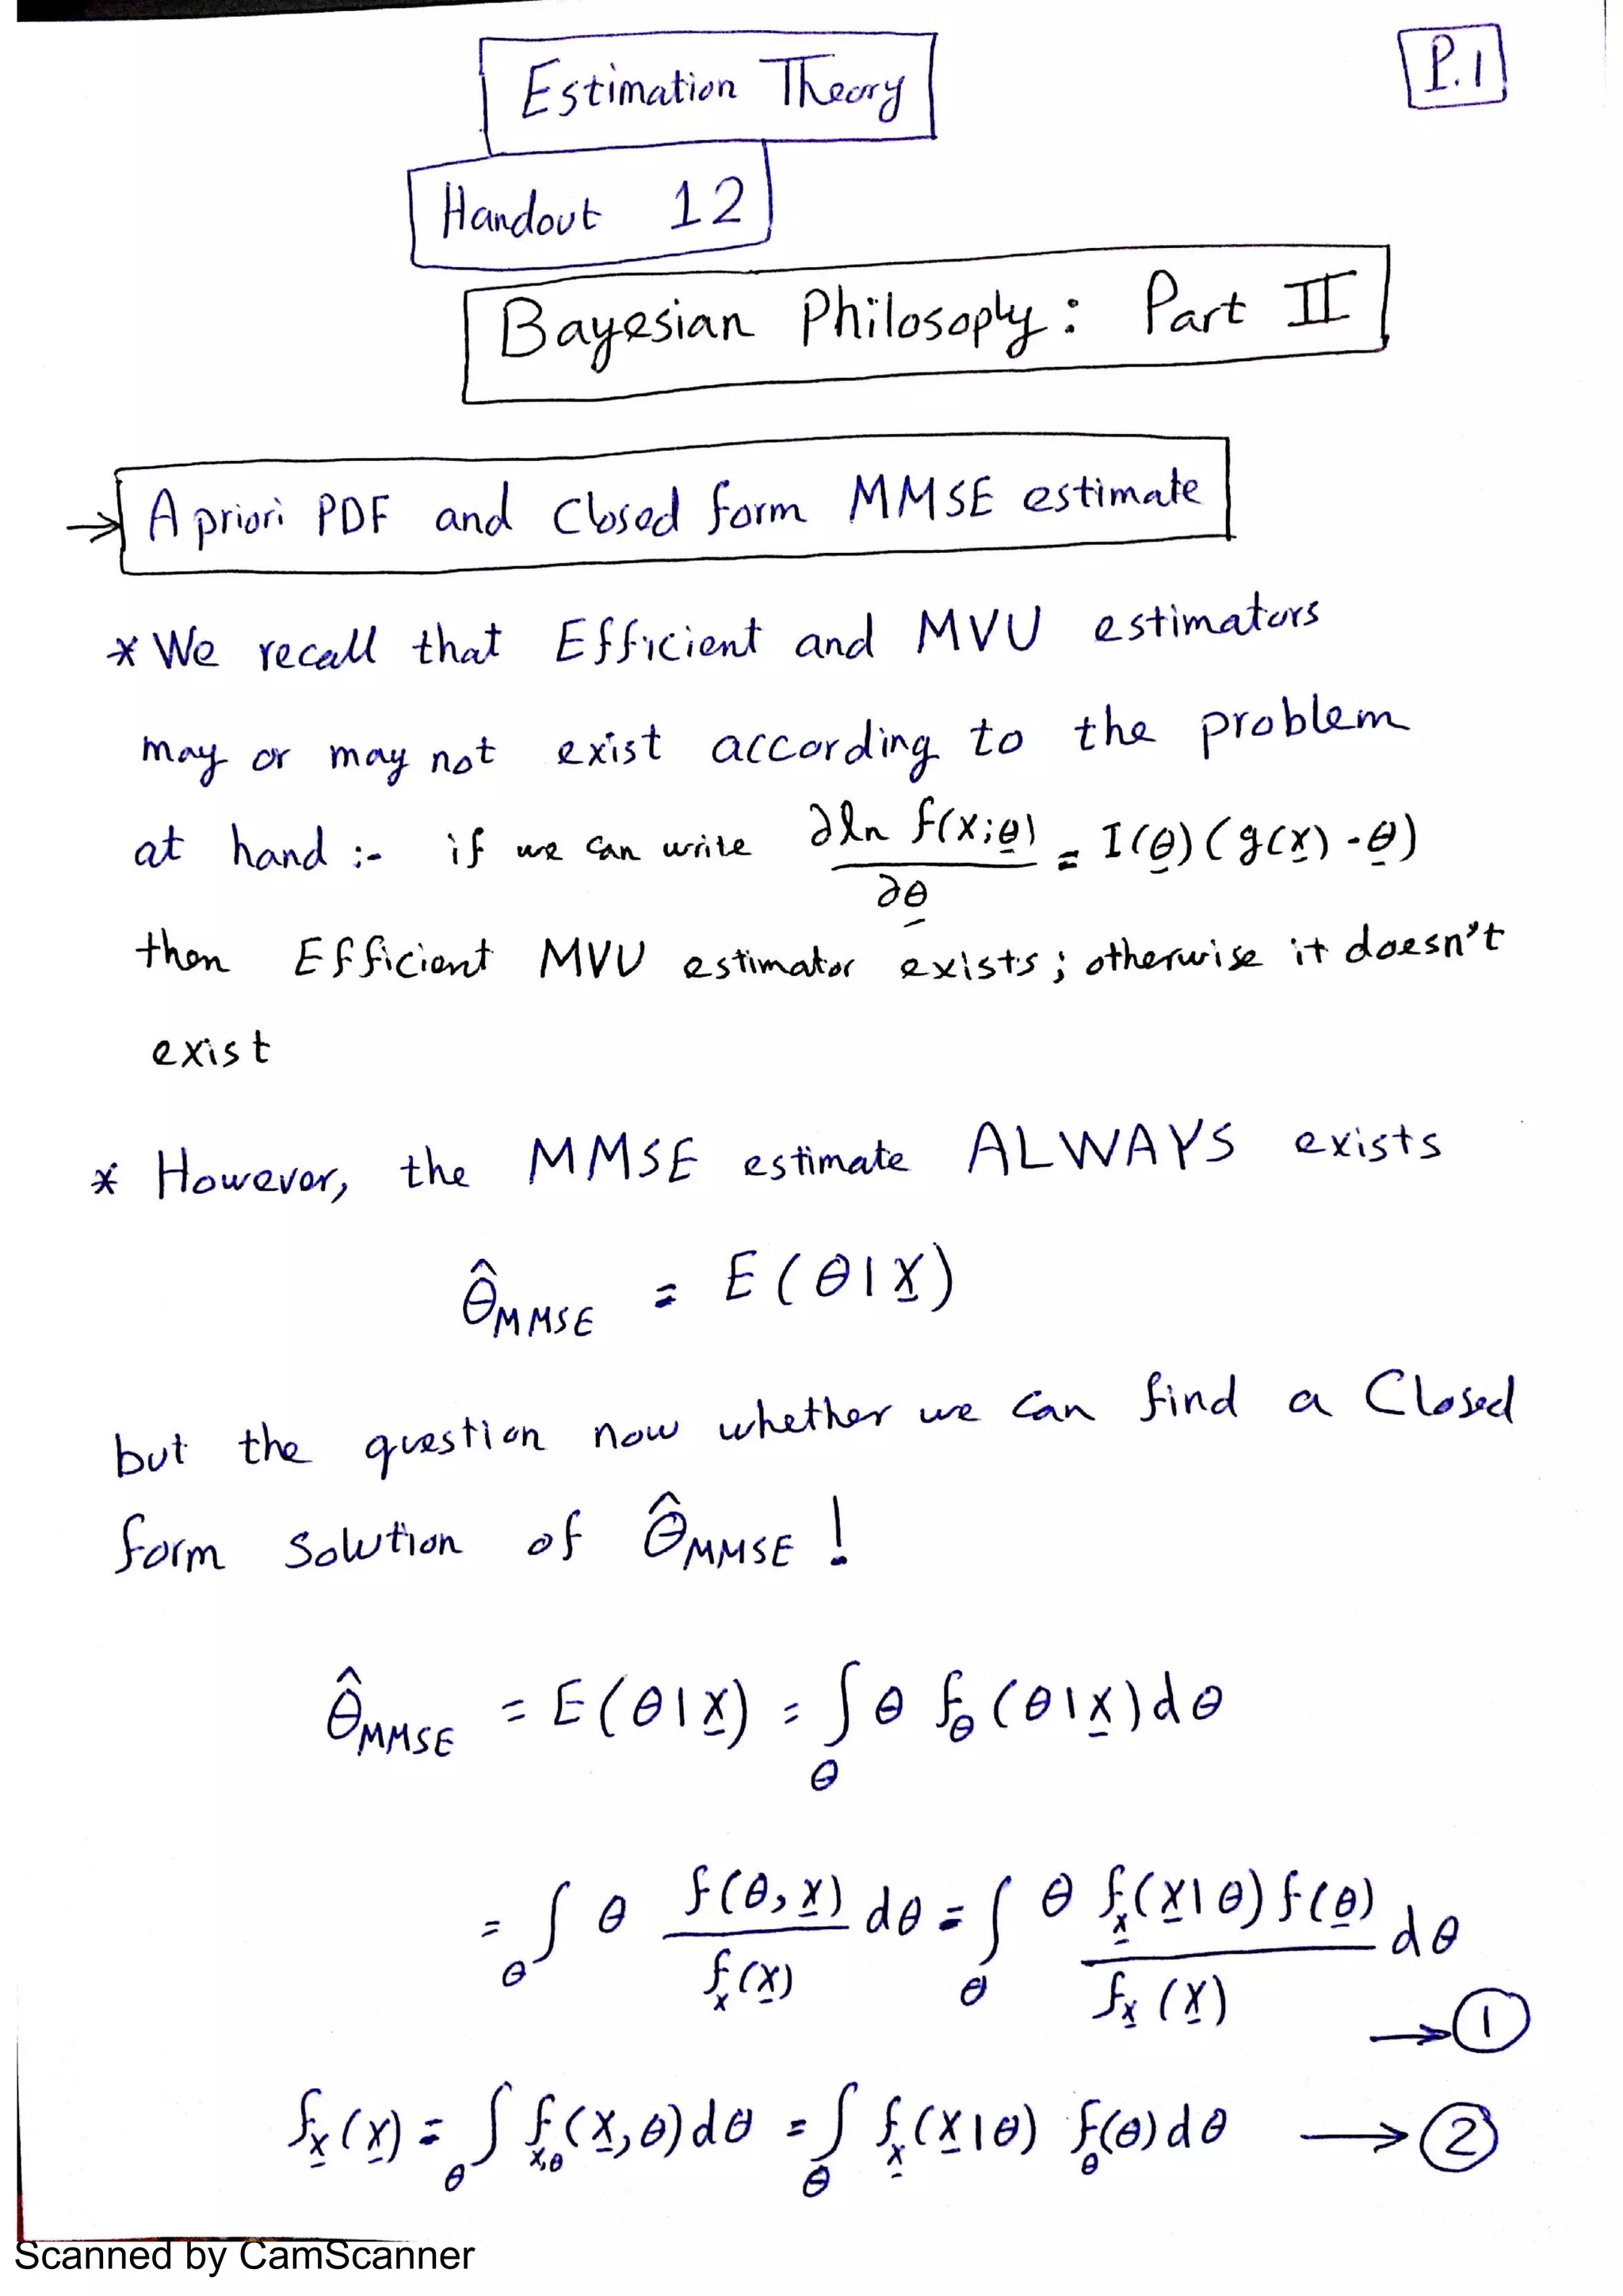 Estimation Theory
P.1
Handout 12
Bayesian Philosophy: Part II
→ A priori PDF and Closed form MMSE estimate
* We recall that Efficient and MVU estimators
may or may not exist according to the problem
at hand :- if we can write ∂ln f(x;θ)/∂θ = I(θ)(g(x)-θ)
then Efficient MVU estimator exists; otherwise it doesn't
exist
* However, the MMSE estimate ALWAYS exists
θ̂_MMSE = E(θ|x)
but the question now whether we can find a Closed
form solution of θ̂_MMSE !
θ̂_MMSE = E(θ|x) = ∫_θ θ f_θ(θ|x)dθ
= ∫_θ θ f(θ,x)/f_x(x) dθ = ∫_θ θ f_x(x|θ)f(θ)/f_x(x) dθ
→ ①
f_x(x) = ∫_θ f_x,θ(x,θ)dθ = ∫_θ f_x(x|θ) f_θ(θ)dθ → ②
Scanned by CamScanner